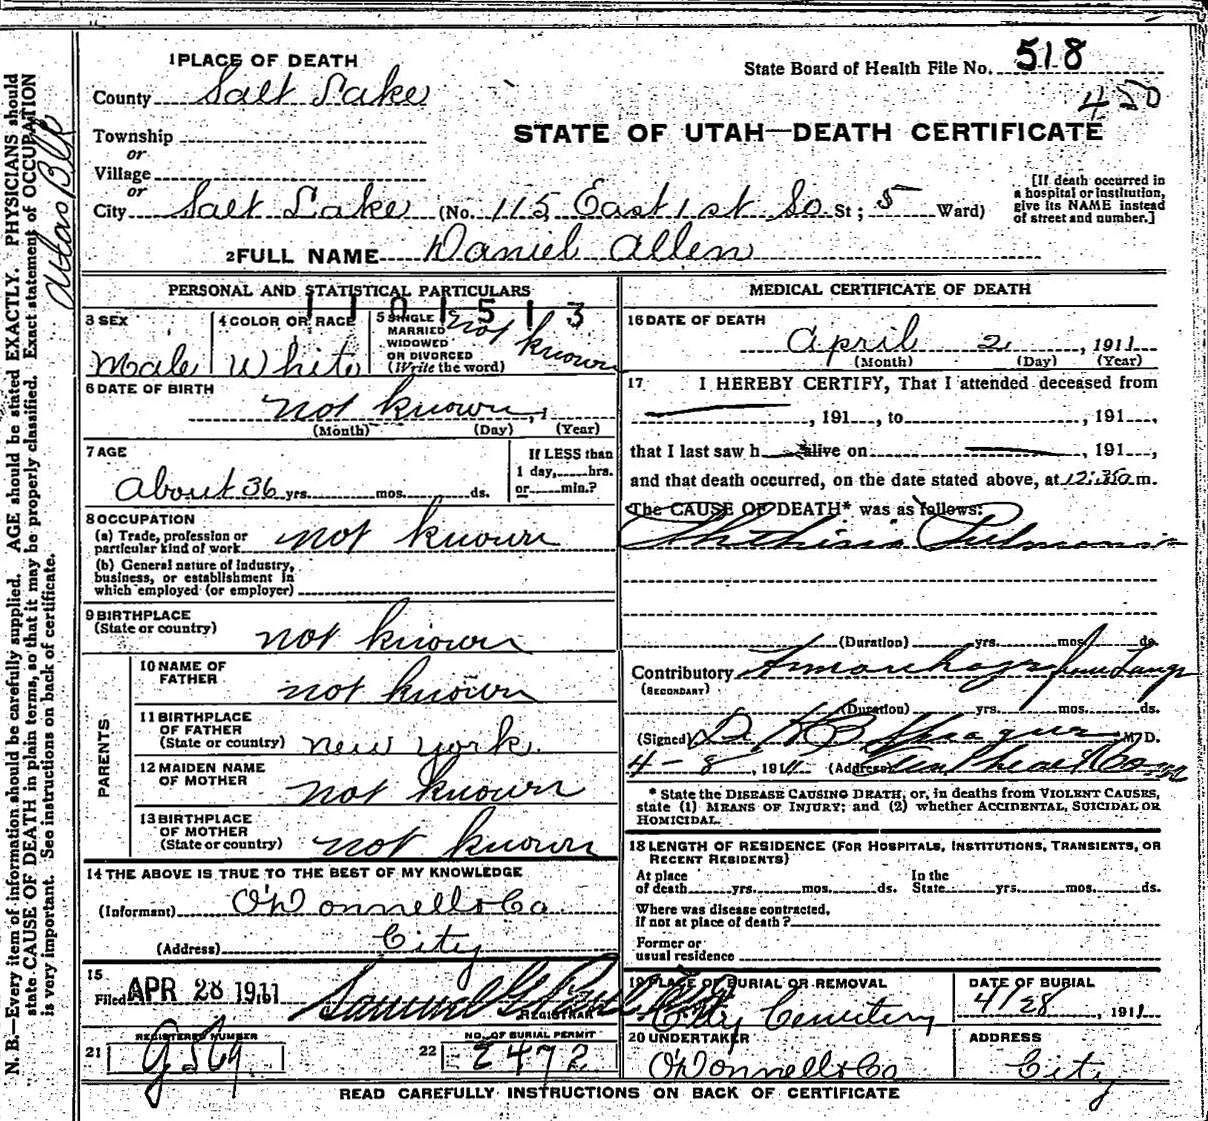 1 PLACE OF DEATH
State Board of Health File No. 518
450
County Salt Lake
STATE OF UTAH—DEATH CERTIFICATE
Township
or
Village
or
City Salt Lake (No. 115 East 1st So St; 5 Ward)
[If death occurred in a hospital or institution, give its NAME instead of street and number.]
2 FULL NAME Daniel Allen
Atlas Blk
N. B.—Every item of information should be carefully supplied. AGE should be stated EXACTLY. PHYSICIANS should
state CAUSE OF DEATH in plain terms, so that it may be properly classified. Exact statement of OCCUPATION
is very important. See instructions on back of certificate.
PERSONAL AND STATISTICAL PARTICULARS
3 SEX
Male
4 COLOR OR RACE
White
5 SINGLE
MARRIED
WIDOWED
OR DIVORCED
(Write the word)
not known
6 DATE OF BIRTH
not known
(Month) (Day) (Year)
7 AGE
About 36 yrs. mos. ds.
If LESS than
1 day, hrs.
or min.?
8 OCCUPATION
(a) Trade, profession or
particular kind of work not known
(b) General nature of industry,
business, or establishment in
which employed (or employer)
9 BIRTHPLACE
(State or country)
not known
PARENTS
10 NAME OF
FATHER
not known
11 BIRTHPLACE
OF FATHER
(State or country) New York.
12 MAIDEN NAME
OF MOTHER
not known
13 BIRTHPLACE
OF MOTHER
(State or country) not known
14 THE ABOVE IS TRUE TO THE BEST OF MY KNOWLEDGE
(Informant) O'Donnell & Co
(Address) City
15
Filed APR 28 1911
REGISTRAR
REGISTERED NUMBER
21
NO. OF BURIAL PERMIT
22 2472
MEDICAL CERTIFICATE OF DEATH
16 DATE OF DEATH
April 2, 1911
(Month) (Day) (Year)
17 I HEREBY CERTIFY, That I attended deceased from
, 191 , to , 191 ,
that I last saw h alive on , 191 ,
and that death occurred, on the date stated above, at 12:30 a m.
The CAUSE OF DEATH* was as follows:
Phthisis Pulmonis
(Duration) yrs. mos. ds.
Contributory
(SECONDARY)
(Duration) yrs. mos. ds.
(Signed) Sprague M. D.
4-8, 1911 (Address)
* State the DISEASE CAUSING DEATH, or, in deaths from VIOLENT CAUSES,
state (1) MEANS OF INJURY; and (2) whether ACCIDENTAL, SUICIDAL OR
HOMICIDAL.
18 LENGTH OF RESIDENCE (FOR HOSPITALS, INSTITUTIONS, TRANSIENTS, OR
RECENT RESIDENTS)
At place
of death yrs. mos. ds.
In the
State yrs. mos. ds.
Where was disease contracted,
if not at place of death?
Former or
usual residence
19 PLACE OF BURIAL OR REMOVAL
City Cemetery
DATE OF BURIAL
4/28, 1911
20 UNDERTAKER
O'Donnell & Co
ADDRESS
City
READ CAREFULLY INSTRUCTIONS ON BACK OF CERTIFICATE